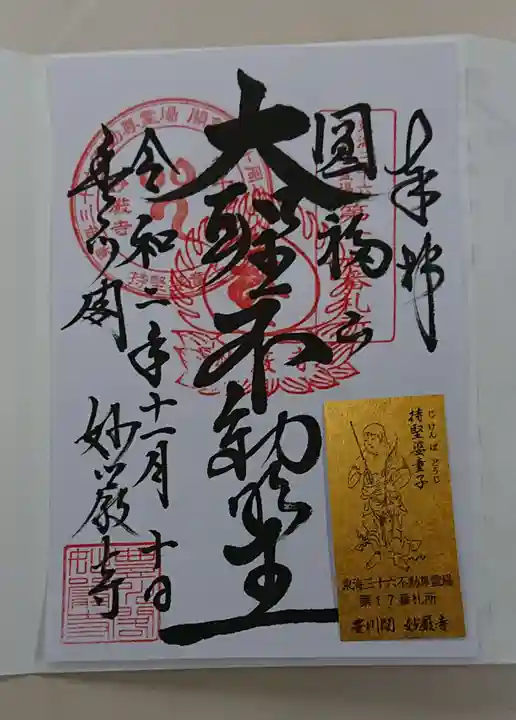 奉拝
圓福山
大聖不動明王
令和二年十一月十日
豊川閣
妙嚴寺
じけんばどうじ
持堅婆童子
東海三十六不動尊霊場
第17番札所
豊川閣 妙厳寺